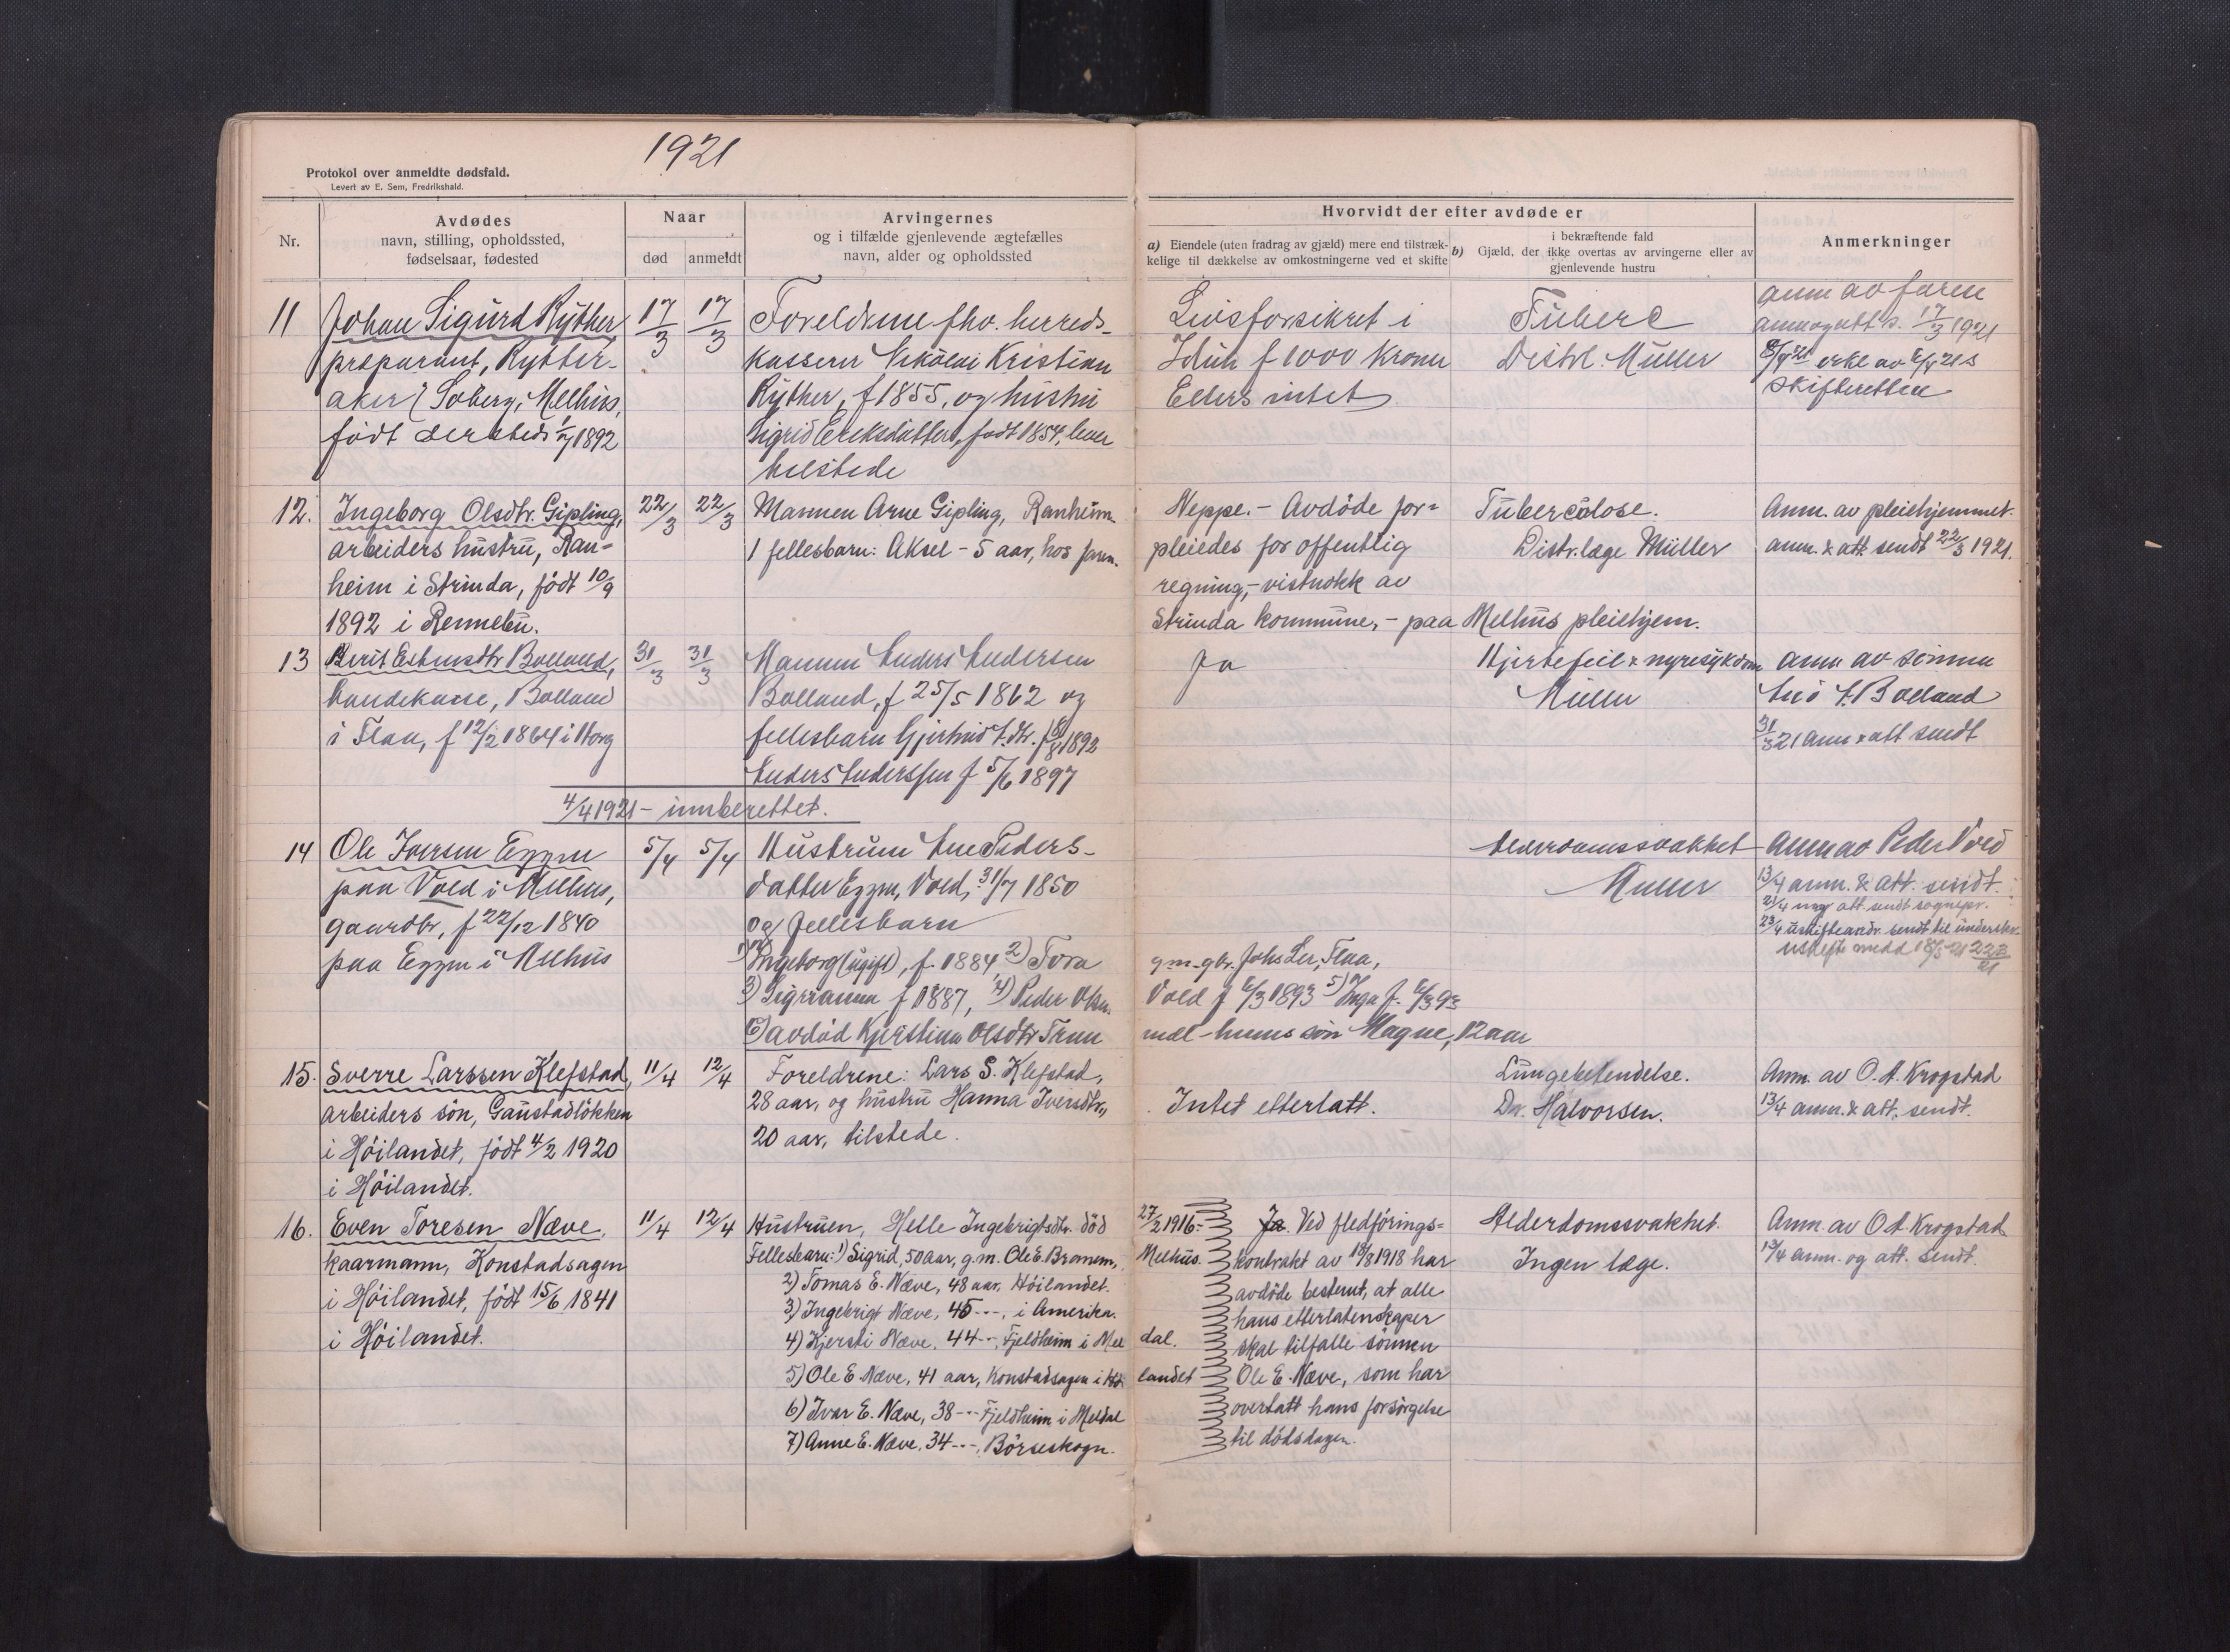 1921
Protokol over anmeldte dødsfald.
Levert av E. Sem, Fredrikshald.
Nr.
Avdødes
navn, stilling, opholdssted,
fødselsaar, fødested
Naar
død anmeldt
Arvingernes
og i tilfælde gjenlevende ægtefælles
navn, alder og opholdssted
Hvorvidt der efter avdøde er
a) Eiendele (uten fradrag av gjæld) mere end tilstræk-
kelige til dækkelse av omkostningerne ved et skifte
i bekræftende fald
b) Gjæld, der ikke overtas av arvingerne eller av
gjenlevende hustru
Anmerkninger
11 Johan Sigurd Rÿther,
preparant, Rÿther-
aker / Söberg, Melhus,
födt dersteds 1892
17/3 17/3
Foreldrene fhv. herreds-
kasserer Nikolai Kristian
Rÿther, f 1855, og hustru
Sigrid Eriksdatter, född 1854, beer
tilstede
Livsforsikret i
Idun f 1000 Kroner
Ellers intet
Tuberc
Distrl. Müller
Anm av faren
anm og att s. 17/3 1921
skifteretten
12. Ingeborg Olsdtr. Gipling,
arbeiders hustru, Ran-
heim i Strinda, födt 10/9
1892 i Rennebu.
22/3 22/3
Mannen Arne Gipling, Ranheim.
1 fellesbarn: Aksel - 5 aar, hos faren.
Neppe. - Avdöde for-
pleiedes for offentlig
regning, - vistnokk av
Strinda kommune, - paa Melhus pleiehjem.
Tuberculose.
Distr.læge Müller
Anm. av pleiehjemmet.
anm. & att. sendt 22/3 1921.
13 Berit Estensdtr Bolland,
bondekone, Bolland
i Flaa, f 12/2 1864 i Horg
31/3 31/3
Mannen Anders Andersen
Bolland, f 25/5 1862 og
fellesbarn Gjertrud A.dtr. f 6/8 1892
Anders Anderssen f 5/6 1897
Ja
Hjertefeil & nyresykdom
Müller
Anm av sönnen
A. Bolland
31/3 21 anm & att sendt
4/4 1921 - innberettet.
14 Ole Iversen Eggen
paa Vold i Melhus,
gaardbr, f 22/12 1840
paa Eggen i Melhus
5/4 5/4
Hustruen Ane Peders-
datter Eggen, Vold, 31/7 1850
og fellesbarn
1) Ingeborg (ugift), f. 1884, 2) Tora
g.m. gbr. Johs Ler, Flaa,
3) Sigrianna f 1887, 4) Peder Olsen
Vold f 6/3 1893 5) Inga f. 6/3 93
6) avdöd Kjerstina Olsdtr Tran
mel - hennes sön Magne, 12 aar
Alderdomssvakhet
Müller
Anm av Peder Vold
13/4 anm. & att. sendt.
21/4 ny att. sendt sognepr.
23/4 uskifteandr. sendt til underskr.
15. Sverre Larssen Klefstad,
arbeiders sön, Gaustadlökken
i Höilandet, födt 4/2 1920
i Höilandet.
11/4 12/4
Foreldrene: Lars S. Klefstad,
28 aar, og hustru Hanna Iversdtr.,
20 aar, tilstede.
Intet etterlatt.
Lungebetendelse.
Dr. Halvorsen.
Anm. av O. A. Krogstad
13/4 anm. & att. sendt.
16. Even Toresen Næve,
kaarmann, Konstadsagen
i Höilandet, födt 15/6 1841
i Höilandet.
11/4 12/4
Hustruen, Helle Ingebrigtsdtr. död
27/2 1916 -
Fellesbarn: 1) Sigrid, 50 aar, g.m. Ole E. Bromem,
Melhus.
2) Tomas E. Næve, 48 aar, Höilandet.
3) Ingebrigt Næve, 45 - - -, i Amerika.
4) Kjersti Næve, 44 - -, Fjeldheim i Mel
dal.
5) Ole E. Næve, 41 aar, Konstadsagen i Höi
landet
6) Ivar E. Næve, 38 - - - Fjeldheim i Meldal
7) Anne E. Næve, 34 - - -, Börseskogn.
Ja. Ved fledförings-
kontrakt av 18/8 1918 har
avdöde bestemt, at alle
hans etterlatenskaper
skal tilfalle sönnen
Ole E. Næve, som har
overtatt hans forsörgelse
til dödsdagen.
Alderdomssvakhet.
Ingen læge.
Anm. av O. A. Krogstad
13/4 anm. og att. sendt.